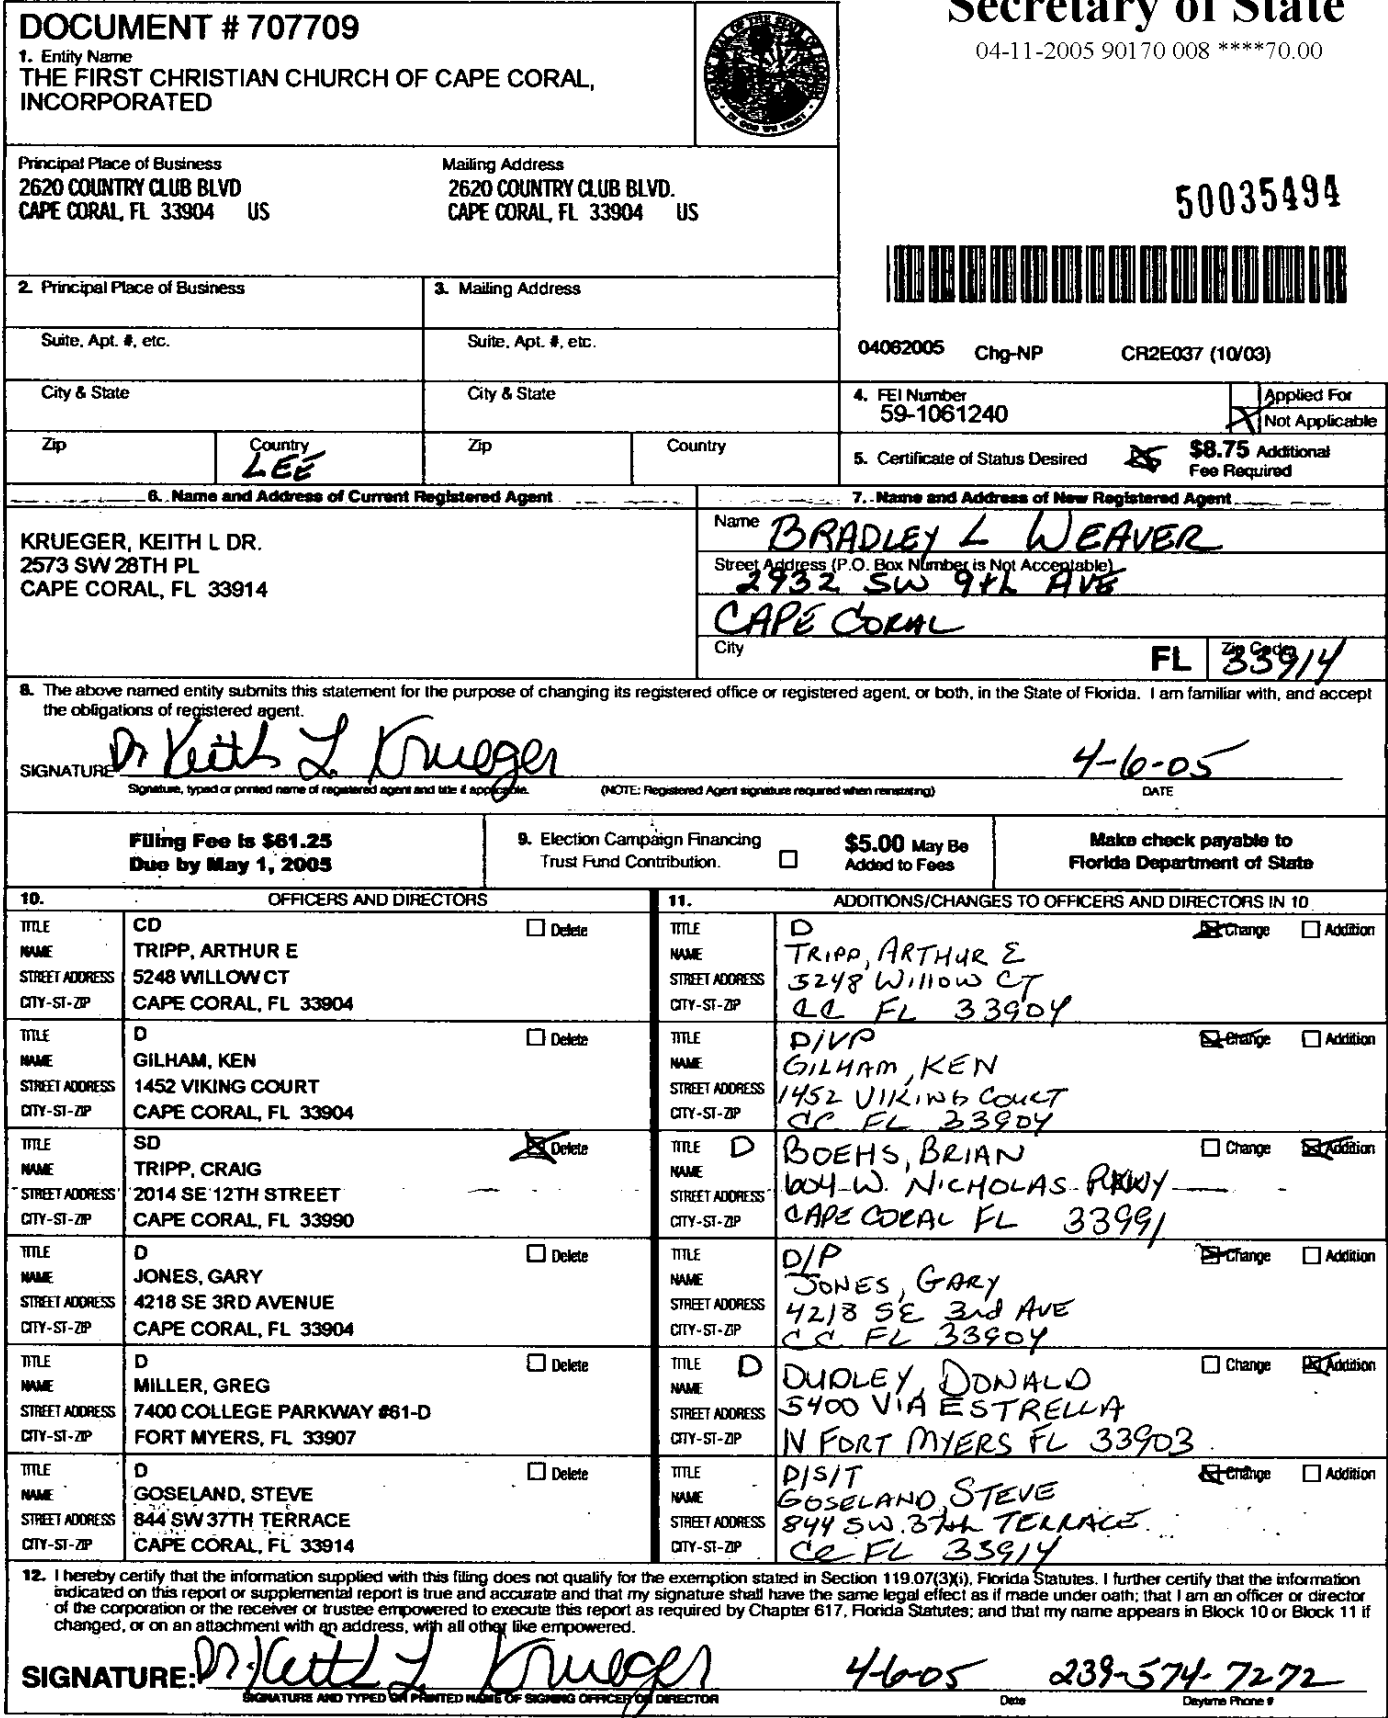 DOCUMENT # 707709
1. Entity Name
THE FIRST CHRISTIAN CHURCH OF CAPE CORAL,
INCORPORATED
Secretary of State
04-11-2005 90170 008 ****70.00
Principal Place of Business
2620 COUNTRY CLUB BLVD
CAPE CORAL, FL 33904 US
Mailing Address
2620 COUNTRY CLUB BLVD.
CAPE CORAL, FL 33904 US
50035494
2. Principal Place of Business
3. Mailing Address
Suite, Apt. #, etc.
Suite, Apt. #, etc.
04062005 Chg-NP CR2E037 (10/03)
City & State
City & State
4. FEI Number
59-1061240
Applied For
Not Applicable
Zip
Country
LEE
Zip
Country
5. Certificate of Status Desired
$8.75 Additional
Fee Required
6. Name and Address of Current Registered Agent
7. Name and Address of New Registered Agent
KRUEGER, KEITH L DR.
2573 SW 28TH PL
CAPE CORAL, FL 33914
Name BRADLEY L WEAVER
Street Address (P.O. Box Number is Not Acceptable)
2932 SW 9th AVE
CAPE CORAL
City
FL
Zip Code
33914
8. The above named entity submits this statement for the purpose of changing its registered office or registered agent, or both, in the State of Florida. I am familiar with, and accept
the obligations of registered agent.
SIGNATURE Dr Keith L. Krueger 4-6-05
Signature, typed or printed name of registered agent and title if applicable. (NOTE: Registered Agent signature required when reinstating) DATE
Filing Fee is $61.25
Due by May 1, 2005
9. Election Campaign Financing
Trust Fund Contribution.
$5.00 May Be
Added to Fees
Make check payable to
Florida Department of State
10. OFFICERS AND DIRECTORS
11. ADDITIONS/CHANGES TO OFFICERS AND DIRECTORS IN 10
TITLE CD Delete
NAME TRIPP, ARTHUR E
STREET ADDRESS 5248 WILLOW CT
CITY-ST-ZIP CAPE CORAL, FL 33904
TITLE D Change Addition
NAME TRIPP, ARTHUR E
STREET ADDRESS 5248 Willow CT
CITY-ST-ZIP CC FL 33904
TITLE D Delete
NAME GILHAM, KEN
STREET ADDRESS 1452 VIKING COURT
CITY-ST-ZIP CAPE CORAL, FL 33904
TITLE D/VP Change Addition
NAME GILHAM, KEN
STREET ADDRESS 1452 VIKING COURT
CITY-ST-ZIP CC FL 33904
TITLE SD Delete
NAME TRIPP, CRAIG
STREET ADDRESS 2014 SE 12TH STREET
CITY-ST-ZIP CAPE CORAL, FL 33990
TITLE D Change Addition
NAME BOEHS, BRIAN
STREET ADDRESS 604 W. NICHOLAS PKWY
CITY-ST-ZIP CAPE CORAL FL 33991
TITLE D Delete
NAME JONES, GARY
STREET ADDRESS 4218 SE 3RD AVENUE
CITY-ST-ZIP CAPE CORAL, FL 33904
TITLE D/P Change Addition
NAME JONES, GARY
STREET ADDRESS 4218 SE 3rd AVE
CITY-ST-ZIP CC FL 33904
TITLE D Delete
NAME MILLER, GREG
STREET ADDRESS 7400 COLLEGE PARKWAY #61-D
CITY-ST-ZIP FORT MYERS, FL 33907
TITLE D Change Addition
NAME DUDLEY, DONALD
STREET ADDRESS 5400 VIA ESTRELLA
CITY-ST-ZIP N FORT MYERS FL 33903
TITLE D Delete
NAME GOSELAND, STEVE
STREET ADDRESS 844 SW 37TH TERRACE
CITY-ST-ZIP CAPE CORAL, FL 33914
TITLE D/S/T Change Addition
NAME GOSELAND, STEVE
STREET ADDRESS 844 SW. 37th TERRACE
CITY-ST-ZIP CC FL 33914
12. I hereby certify that the information supplied with this filing does not qualify for the exemption stated in Section 119.07(3)(i), Florida Statutes. I further certify that the information
indicated on this report or supplemental report is true and accurate and that my signature shall have the same legal effect as if made under oath; that I am an officer or director
of the corporation or the receiver or trustee empowered to execute this report as required by Chapter 617, Florida Statutes; and that my name appears in Block 10 or Block 11 if
changed, or on an attachment with an address, with all other like empowered.
SIGNATURE: Dr. Keith L Krueger 4-6-05 239-574-7272
SIGNATURE AND TYPED OR PRINTED NAME OF SIGNING OFFICER OR DIRECTOR Date Daytime Phone #